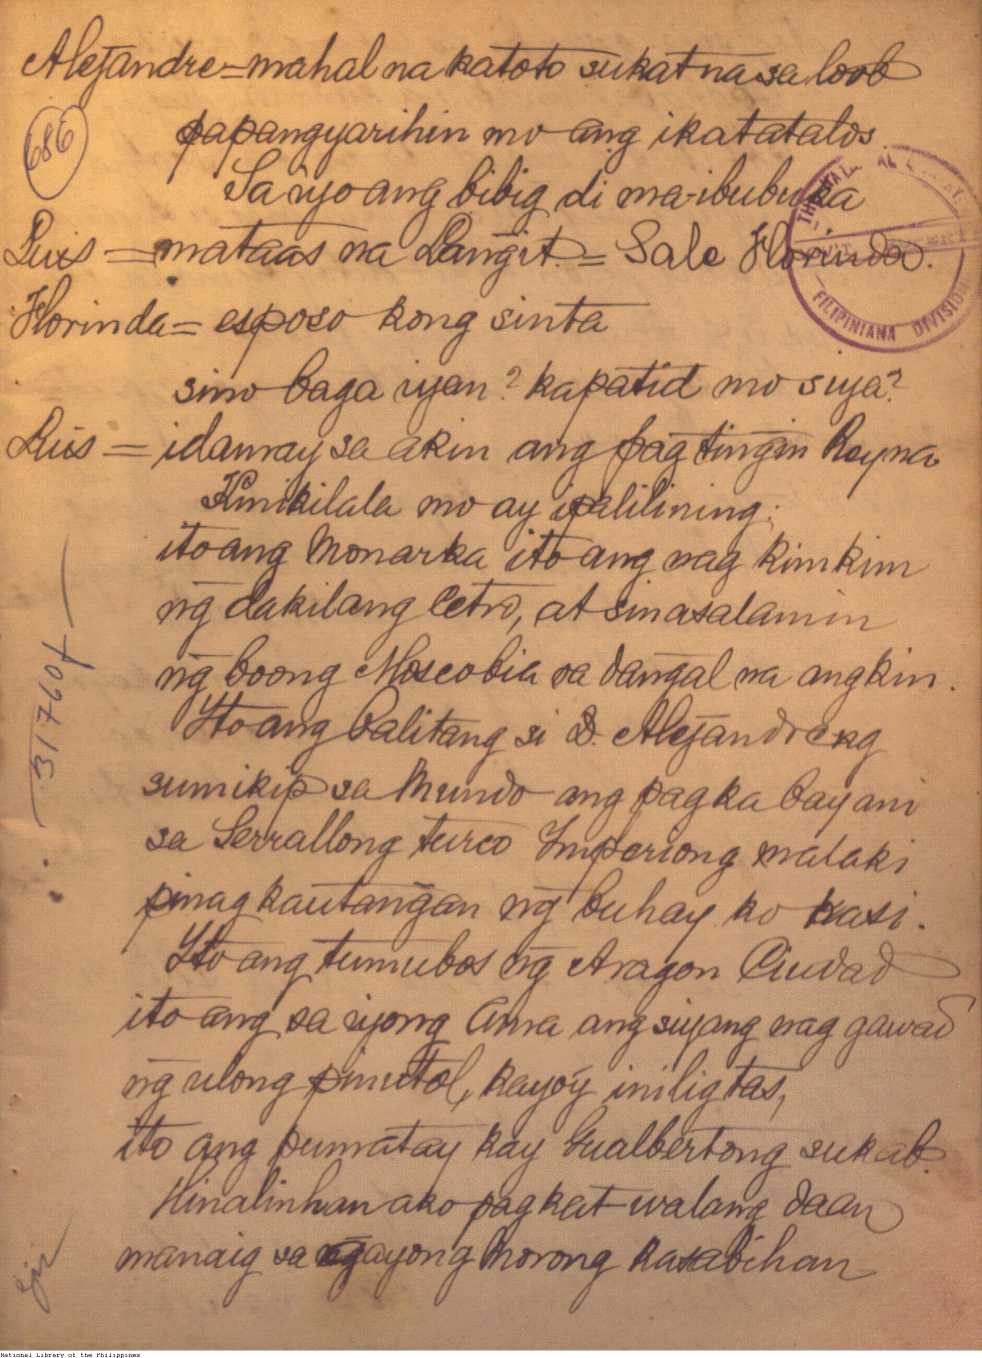 Alejandre = mahal na katoto sukat na sa loob
686
papangyarihin mo ang ikatatalos
Sa iyo ang bibig di ma-ibubuka
Luis = mataas na Langit. = Sale Florinda.
FILIPINIANA DIVISION
Florinda = esposo kong sinta
sino baga iyan? kapatid mo siya?
Luis = idaway sa akin ang pagtingin Reyna
Kinikilala mo ay ipalilining;
ito ang Monarka ito ang nag kimkim
ng̃ dakilang Cetro, at sinasalamin
ng̃ boong Moscobia sa dang̃al na angkin.
31760f
Ito ang balitang si D. Alejandreng
sumikip sa Mundo ang pagka bayani
sa Serrallong turco Imperiong malaki
pinagkautang̃an ng̃ buhay ko kasi.
Ito ang tumubos ng̃ Aragon Ciudad
ito ang sa iyong Ama ang siyang nag gawad
ng̃ ulong pinutol, kayo'y iniligtas,
ito ang pumatay kay Gualbertong sukab.
Hinalinhan ako pagkat walang daan
manaig sa gayong Morong kasabihan
National Library of the Philippines